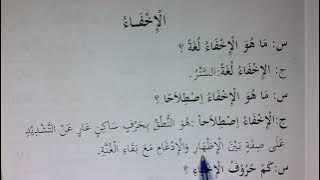 الْإِخْفَاءُ
س: مَا هُوَ الْإِخْفَاءُ لُغَةً ؟
ج: الْإِخْفَاءُ لُغَةً: السَّتْرُ.
س: مَا هُوَ الْإِخْفَاءُ اِصْطِلَاحًا ؟
ج: الْإِخْفَاءُ اِصْطِلَاحاً: هُوَ النُّطْقُ بِحَرْفٍ سَاكِنٍ عَارٍ عَنْ التَّشْدِيْدِ
عَلَى صِفَةٍ بَيْنَ الْإِظْهَارِ وَالْإِدْغَامِ مَعَ بَقَاءِ الْغُنَّةِ.
س: كَمْ حُرُوْفُ الْإِخْفَاءِ ؟